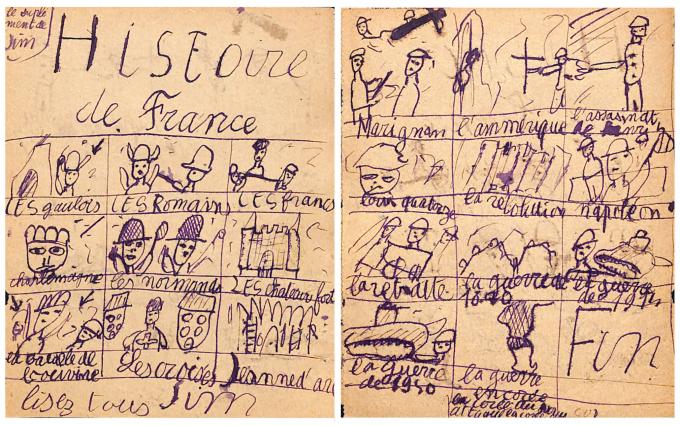 le suplé
ment de
Jim
HiSEOire
de France
LES gaulois LES Romains LES francs
charlemagne les normands LES chateau fort
et bataille de
bouvine les croisés Jeanned arc
lisez tous Jim
Marignan l'ammérique l'assasinat
de henri
louis quatorze la révolution napoléon
la retraite la guerre de
1870 et guerre
de 1914
la guerre
de 1930 la guerre
encore
Fin